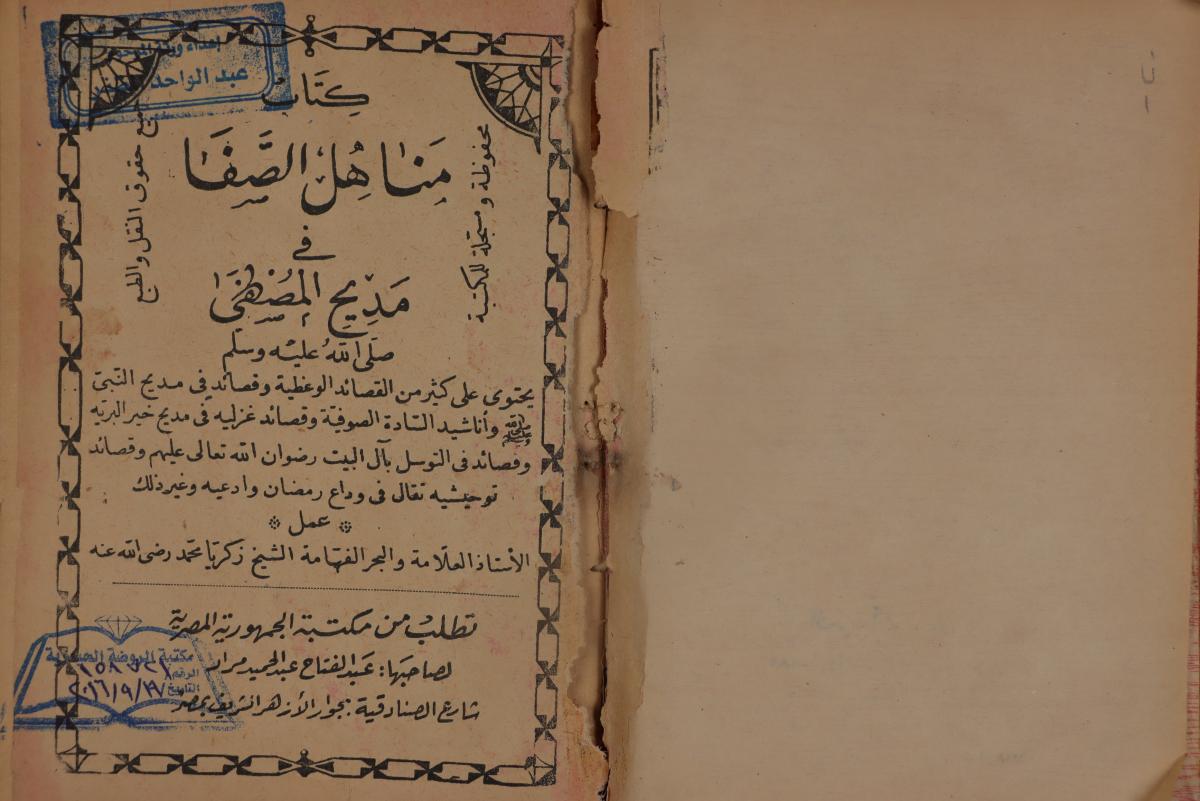 كتاب
مناهل الصفا
في
مديح المصطفى
صلى الله عليه وسلم
جميع حقوق النقل والطبع
محفوظة ومسجلة للمكتبة
يحتوى على كثير من القصائد الوعظية وقصائد في مديح النبي
ﷺ وأناشيد السادة الصوفية وقصائد غزليه فى مديح خير البريه
وقصائد فى التوسل بآل البيت رضوان الله تعالى عليهم وقصائد
توحيشيه تقال فى وداع رمضان وادعيه وغير ذلك
عمل
الأستاذ العلامة والبحر الفهامة الشيخ زكريا محمد رضى الله عنه
تطلب من مكتبة الجمهورية المصرية
لصاحبها: عبد الفتاح عبد الحميد مراد
شارع الصنادقية بجوار الأزهر الشريف بمصر
إهداء ورثة
عبد الواحد
مكتبة الروضة الحيدرية
الرقم
التاريخ